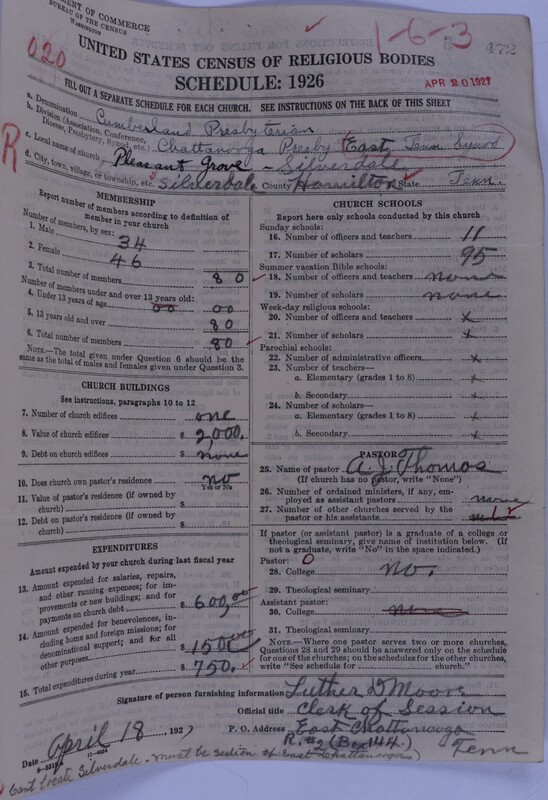 DEPARTMENT OF COMMERCE
BUREAU OF THE CENSUS
WASHINGTON
1-6-3
472
020
UNITED STATES CENSUS OF RELIGIOUS BODIES
SCHEDULE: 1926
APR 20 1927
FILL OUT A SEPARATE SCHEDULE FOR EACH CHURCH. SEE INSTRUCTIONS ON THE BACK OF THIS SHEET
R
a. Denomination Cumberland Presbyterian
b. Division (Association, Conference, Diocese, Presbytery, Synod, etc.) Chattanooga Presby East, Tenn Synod
c. Local name of church Pleasant Grove - Silverdale
d. City, town, village, or township, etc. Silverdale County Hamilton State Tenn.
MEMBERSHIP
Report number of members according to definition of member in your church
Number of members, by sex:
1. Male 34
2. Female 46
3. Total number of members 80
Number of members under and over 13 years old:
4. Under 13 years of age 00 00
5. 13 years old and over 80
6. Total number of members 80
NOTE.—The total given under Question 6 should be the same as the total of males and females given under Question 3.
CHURCH BUILDINGS
See instructions, paragraphs 10 to 12
7. Number of church edifices one
8. Value of church edifices $ 2000.
9. Debt on church edifices $ none
10. Does church own pastor's residence no
Yes or No
11. Value of pastor's residence (if owned by church) $
12. Debt on pastor's residence (if owned by church) $
EXPENDITURES
Amount expended by your church during last fiscal year
13. Amount expended for salaries, repairs, and other running expenses; for improvements or new buildings; and for payments on church debt $ 600.00
14. Amount expended for benevolences, including home and foreign missions; for denominational support; and for all other purposes $ 150.00
15. Total expenditures during year $ 750.
CHURCH SCHOOLS
Report here only schools conducted by this church
Sunday schools:
16. Number of officers and teachers 11
17. Number of scholars 95
Summer vacation Bible schools:
18. Number of officers and teachers none
19. Number of scholars none
Week-day religious schools:
20. Number of officers and teachers x
21. Number of scholars x
Parochial schools:
22. Number of administrative officers x
23. Number of teachers—
a. Elementary (grades 1 to 8) x
b. Secondary x
24. Number of scholars—
a. Elementary (grades 1 to 8) x
b. Secondary x
PASTOR
25. Name of pastor A. J. Thomas
(If church has no pastor, write "None")
26. Number of ordained ministers, if any, employed as assistant pastors none
27. Number of other churches served by the pastor or his assistants
If pastor (or assistant pastor) is a graduate of a college or theological seminary, give name of institution below. (If not a graduate, write "No" in the space indicated.)
Pastor: 0
28. College no.
29. Theological seminary
Assistant pastor:
30. College none
31. Theological seminary
NOTE.—Where one pastor serves two or more churches, Questions 28 and 29 should be answered only on the schedule for one of the churches; on the schedules for the other churches, write "See schedule for church."
Signature of person furnishing information Luther D Moore
Official title Clerk of Session
Date April 18, 1927
P. O. Address East Chattanooga
R. #2 (Box 144.) Tenn
Cant locate Silverdale - must be section of East Chattanooga